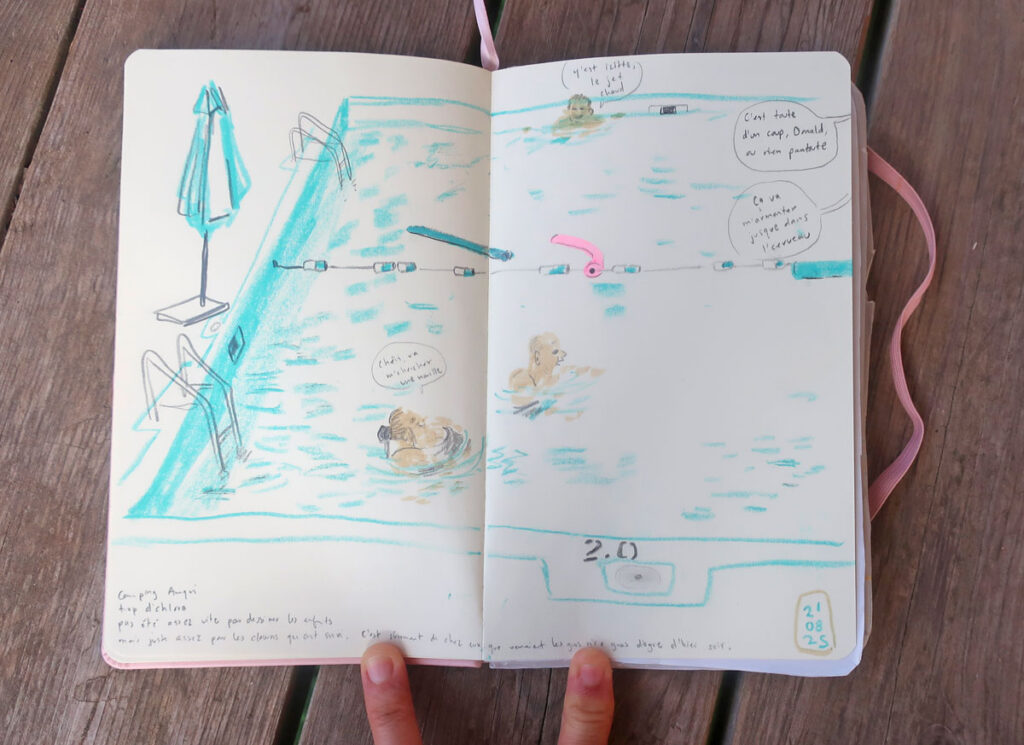 Y'est icitte,
le jet
chaud
C'est toute
d'un coup, Donald,
ou rien pantoute
Ça va
m'armonter
jusque dans
l'cerveau
Chéri, va
m'chercher
une nouille
2.0
Camping Amqui
trop d'chlore
pas été assez vite pour dessiner les enfants
mais juste assez pour les clowns qui ont suivi. C'est sûrement de chez eux que venaient les gras d'ogre d'hier soir.
21
08
25